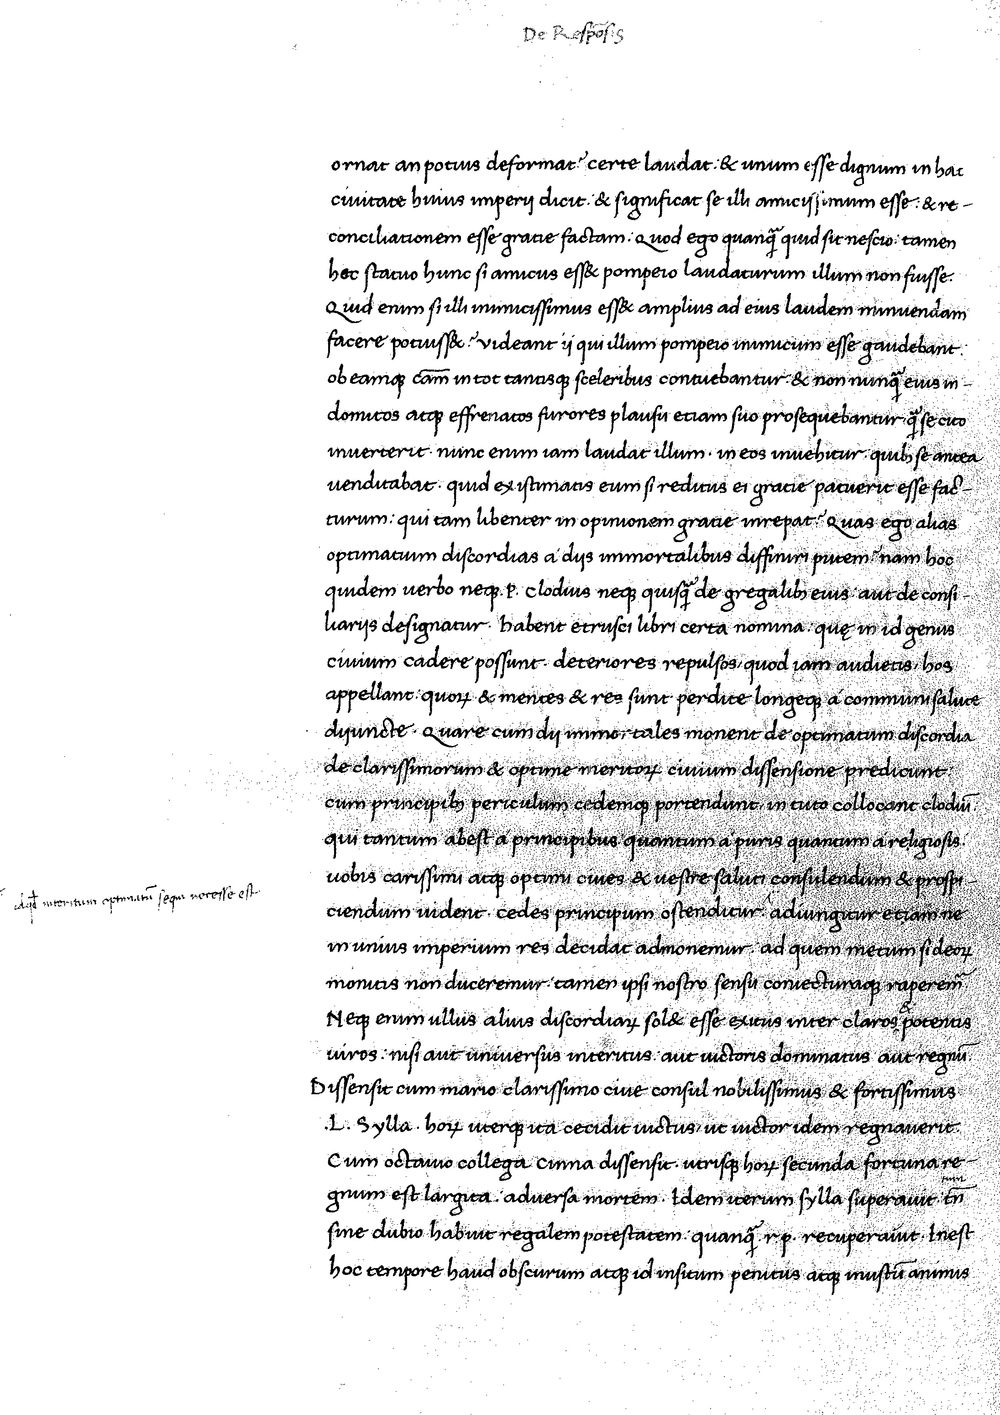 De Respōsis
ornat an potius deformat? certe laudat: & unum esse dignum in hac
ciuitate huius imperij dicit: & significat se illi amicissimum esse: & re-
conciliationem esse gratie factam: Quod ego quanq̄ quid sit nescio: tamen
hoc statuo hunc si amicus ess& pompeio laudaturum illum non fuisse.
Quid enim si illi inimicissimus ess& amplius ad eius laudem minuendam
facere potuiss&? videant ij qui illum pompeio inimicum esse gaudebant:
ob eamq; cām in tot tantisq; sceleribus contuebantur: & non nunq̄ eius in-
domitos atq; effrenatos furores plausu etiam suo prosequebantur q̄ se cito
inuerterit. nunc enim iam laudat illum. in eos inuehitur. quib; se antea
uenditabat. quid existimatis eum si reditus ei gratie patuerit esse fac-
turum: qui tam libenter in opinionem gratie inrepat? Quas ego alias
optimatium discordias a diis immortalibus diffiniri putem? nam hoc
quidem uerbo neq; .P. Clodius neq; quisq̄ de gregalib; eius: aut de consi-
liariis designatur. habent etrusci libri certa nomina: quę in id genus
ciuium cadere possunt. deteriores repulsos, quod iam audietis, hos
appellant: quoꝝ & mentes & res sunt perdite longeq; a communi salute
disiuncte. Quare cum dij immortales monent de optimatum discordia
de clarissimorum & optime meritoꝝ ciuium dissensione predicunt:
cum principib; periculum cedemq; portendunt, in tuto collocant clodiū.
qui tantum abest a principibus quantum a puris quantum a religiosis.
uobis carissimi atq; optimi ciues & uestre saluti consulendum & prospi-
ciendum uident. cedes principum ostenditur: adiungitur etiam ne
id qđ interitum optimatū sequi necesse est
in unius imperium res decidat admonemur. ad quem metum si deoꝝ
monitis non duceremur: tamen ipsi nostro sensu coniecturaq; raperem̄
Neq; enim ullus alius discordiaꝝ sol& esse exitus inter claros & potentis
uiros: nisi aut uniuersus interitus. aut uictoris dominatus aut regnū.
Dissensit cum mario clarissimo ciue consul nobilissimus & fortissimus
.L. Sylla. hoꝝ uterq; ita cecidit uictus, ut uictor idem regnauerit.
Cum octauio collega cinna dissensit. utrisq; hoꝝ secunda fortuna re-
gnum est largita. aduersa mortem. Idem iterum sylla superauit tn̄
sine dubio habuit regalem potestatem: quanq̄ .r.p. recuperauit. Inest
hoc tempore haud obscurum atq; id insitum penitus atq; inustū animus